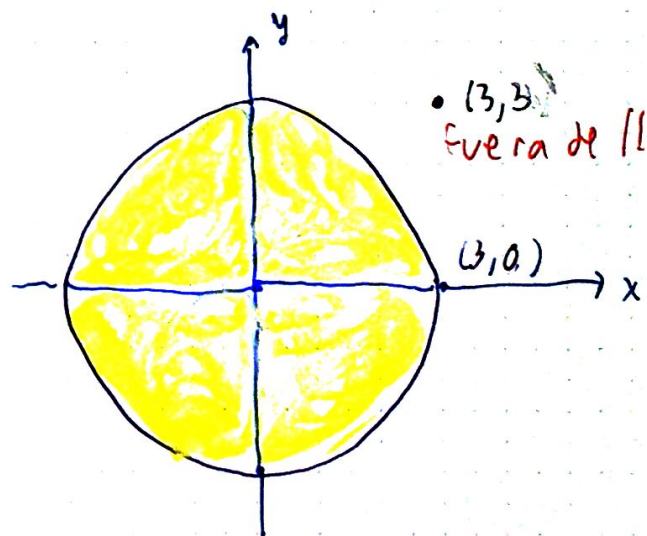 y
(3,3)
fuera de
(3,0)
x